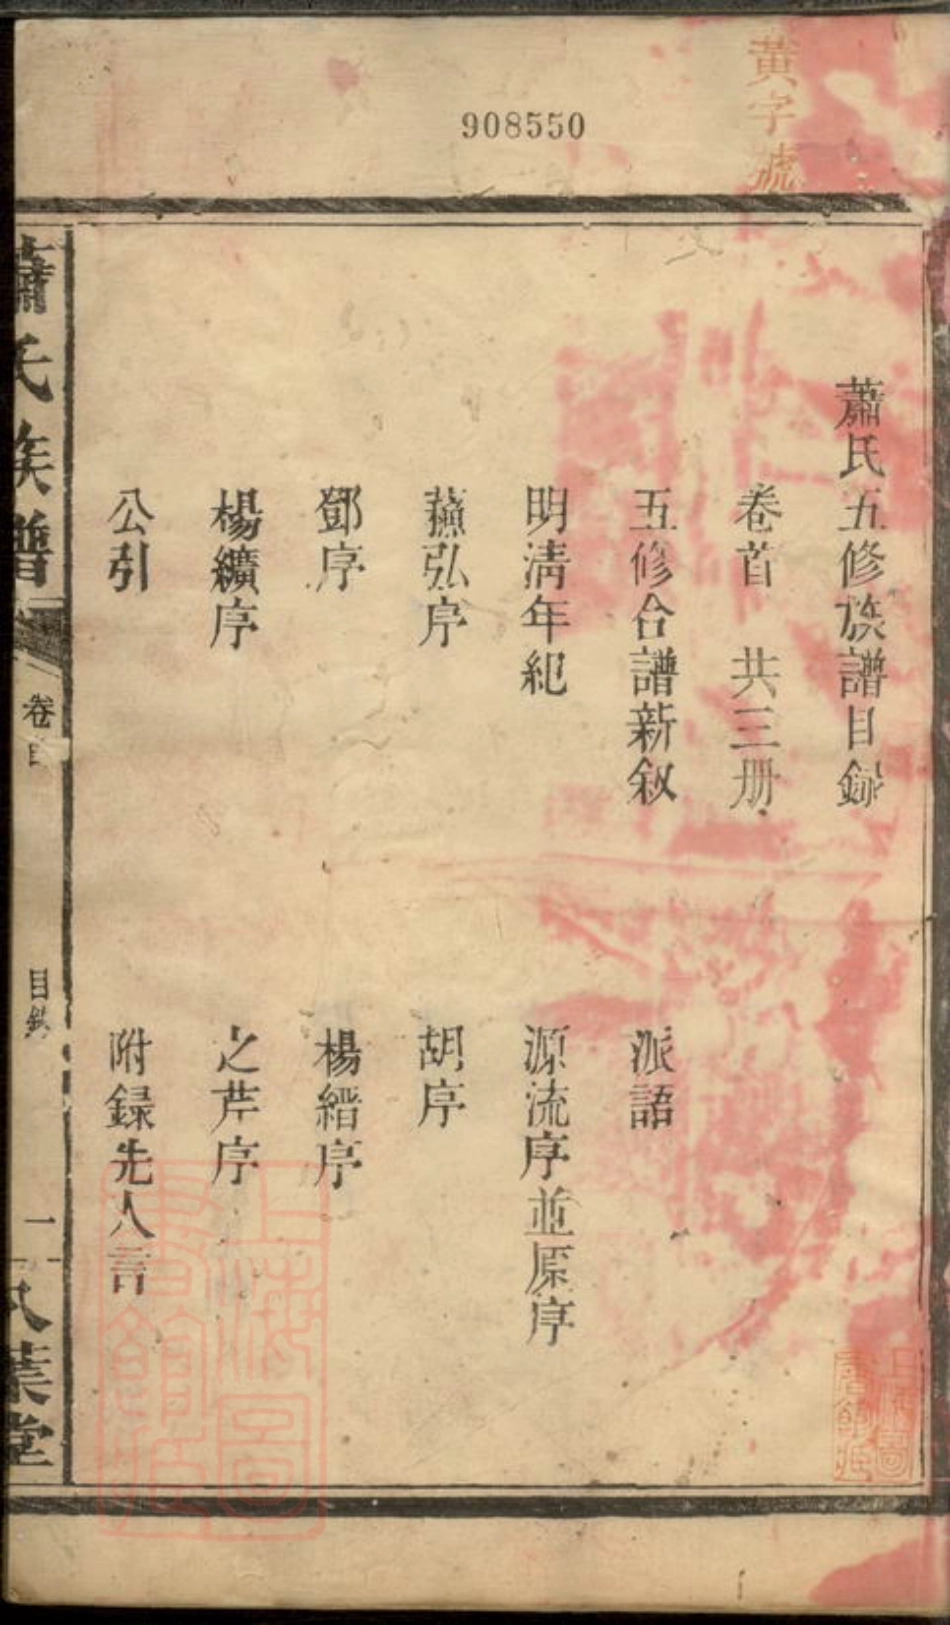 黃字號
908550
蕭氏五修族譜目録
卷首　共三册
五修合譜新敘　派語
明清年紀　源流序並原序
蘓弘序　胡序
鄧序　楊縉序
楊纘序　之芹序
公引　附録先人言
蕭氏族譜　卷首　目錄　一　八葉堂
上海圖書館藏
上海圖書館藏